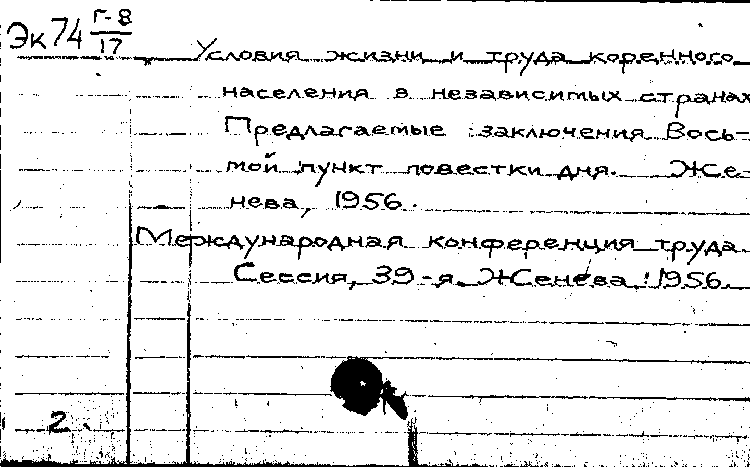 Эк74 Г-8/17
Условия жизни и труда коренного
населения в независимых странах
Предлагаемые заключения Вось-
мой пункт повестки дня. Же-
нева, 1956.
Международная конференция труда.
Сессия, 39-я. Женева. 1956.
2.